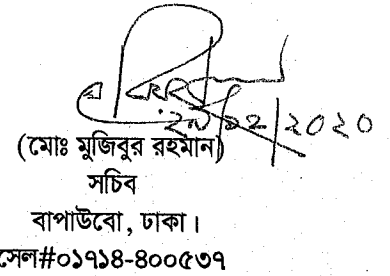 ২৯/১২/২০২০
(মোঃ মুজিবুর রহমান)
সচিব
বাপাউবো, ঢাকা।
সেল#০১৭১৪-৪০০৫৩৭